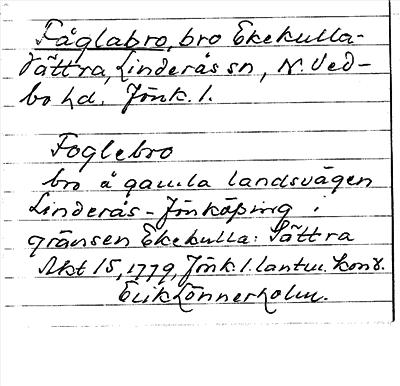 Fåglabro, bro Ekekulla-
Sättra, Linderås sn, N. Ved-
bo hd. Jönk. l.
Foglebro
bro å gamla landsvägen
Linderås - Jönköping i
gränsen Ekekulla: Sättra
Akt 15, 1779, Jönk. l. lantm. kont.
Erik Lönnerholm.